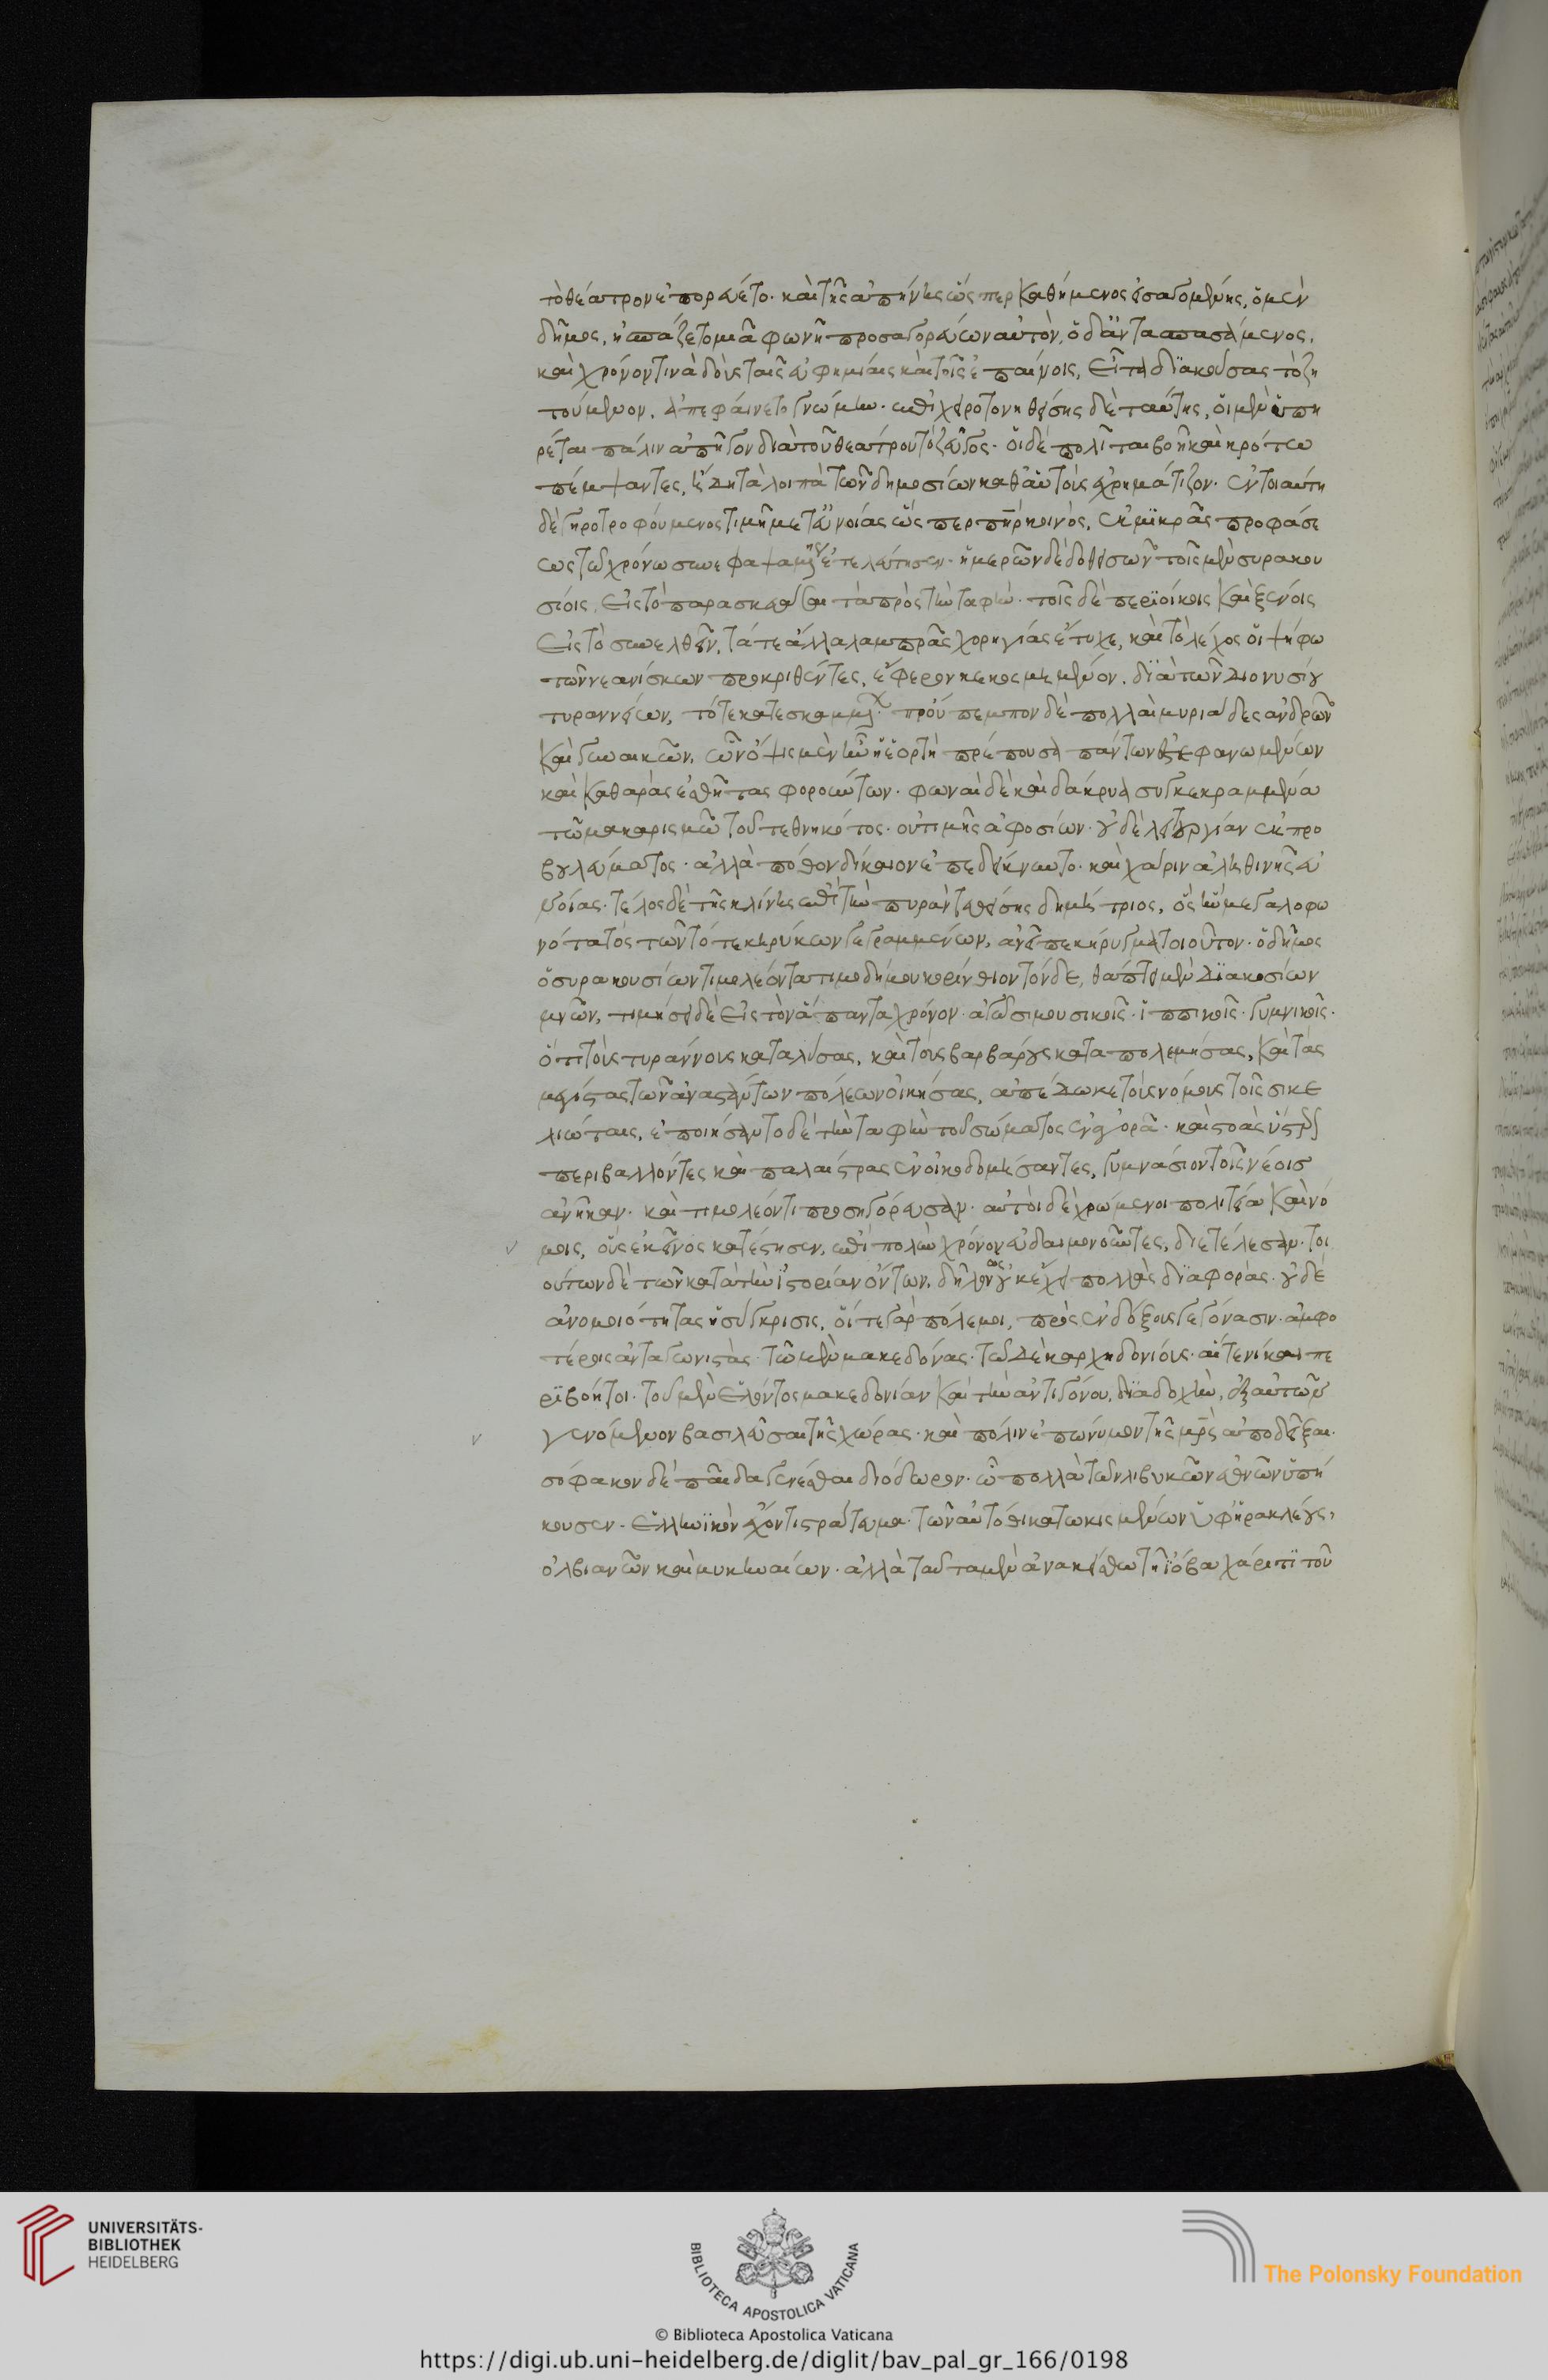 τὸ θέατρον ἐπορεύετο· καὶ τῆς ἀπήνης ὥσπερ καθήμενος εἰσαγομένης, ὁ μὲν
δῆμος, ἠσπάζετο μιᾷ φωνῇ προσαγορεύων αὐτὸν, ὁ δ' ἀντασπασάμενος,
καὶ χρόνον τινὰ δοὺς ταῖς εὐφημίαις καὶ τοῖς ἐπαίνοις, εἶτα διακούσας τὸ ζη
τούμενον, ἀπεφαίνετο γνώμην· ἐπιχειροτονηθείσης δὲ ταύτης, οἱ μὲν ὑπη
ρέται πάλιν ἀπῆγον διὰ τοῦ θεάτρου τὸ ζεῦγος· οἱ δὲ πολῖται βοῇ καὶ κρότῳ
πέμψαντες, ἤδη τὰ λοιπὰ τῶν δημοσίων καθ' αὑτοὺς ἐχρημάτιζον· ἐν τοιαύτῃ
δὲ γηροτροφούμενος τιμῇ μετ' εὐνοίας ὥσπερ πὴρ κοινὸς, ἐκ μικρᾶς προφάσε
ως τῷ χρόνῳ συνεφαψαμένης ἐτελεύτησεν· ἡμερῶν δὲ δοθεισῶν τοῖς μὲν συρακου
σίοις, εἰς τὸ παρασκευάσαι τὰ πρὸς τὴν ταφὴν· τοῖς δὲ περιοίκοις καὶ ξένοις
εἰς τὸ συνελθεῖν, τά τε ἄλλα λαμπρᾶς χορηγίας ἔτυχε, καὶ τὸ λέχος οἱ ψήφῳ
τῶν νεανίσκων προκριθέντες, ἔφερον κεκοσμημένον, διὰ τῶν Διονυσίου
τυραννείων, τότε κατεσκαμμένων· προύπεμπον δὲ πολλαὶ μυριάδες ἀνδρῶν
καὶ γυναικῶν, ὧν ὄψις μὲν ἦν ἑορτῇ πρέπουσα πάντων ἐστεφανωμένων
καὶ καθαρὰς ἐσθῆτας φορούντων· φωναὶ δὲ καὶ δάκρυα συγκεκραμμένα
τῷ μακαρισμῷ τοῦ τεθνηκότος· οὐ τιμῆς ἀφοσίων· οὐδὲ λειτουργίαν ἐκ προ
βουλεύματος· ἀλλὰ πόθον δίκαιον ἐπεδείκνυντο· καὶ χάριν ἀληθινῆς εὐ
νοίας· τέλος δὲ τῆς κλίνης ἐπὶ τὴν πυρὰν τεθείσης δημήτριος, ὃς ἦν μεγαλοφω
νότατος τῶν τότε κηρύκων γεγραμμένων, ἀνεῖπε κήρυγμα τοιοῦτον· ὁ δῆμος
ὁ συρακουσίων τιμολέοντα τιμοδήμου κορίνθιον τόνδε, θάπτει μὲν Διακοσίων
μνῶν, τιμήσει δὲ εἰς τὸν ἅπαντα χρόνον ἀγῶσι μουσικοῖς· ἱππικοῖς· γυμνικοῖς·
ὅτι τοὺς τυράννους καταλύσας, καὶ τοὺς βαρβάρους καταπολεμήσας, καὶ τὰς
μεγίστας τῶν ἀναστάτων πόλεων οἰκήσας, ἀπέδωκε τοὺς νόμους τοῖς σικε
λιώταις, ἐποιήσαντο δὲ τὴν ταφὴν τοῦ σώματος ἐν ἀγορᾷ· καὶ στοὰς ὕστερον
περιβαλλόντες καὶ παλαίστρας ἐνοικοδομήσαντες, γυμνάσιον τοῖς νέοις
ἀνῆκαν· καὶ τιμολεόντι προσηγόρευσαν· αὐτοὶ δὲ χρώμενοι πολιτείᾳ καὶ νό
μοις, οὓς ἐκεῖνος κατέστησεν, ἐπὶ πολὺν χρόνον εὐδαιμονοῦντες, διετέλεσαν· τοι
ούτων δὲ τῶν κατὰ τὴν ἱστορίαν ὄντων, δῆλον ὡς οὐκ ἔχει πολλὰς διαφορὰς· οὐδὲ
ἀνομοιότητας ἡ σύγκρισις, οἵ τε γὰρ πόλεμοι, πρὸς ἐνδόξους γεγόνασιν ἀμφο
τέροις ἀνταγωνιστὰς· τῷ μὲν μακεδόνας· τῷ Δὲ καρχηδονίους· αἵ τε νίκαι πε
ριβόητοι· τοῦ μὲν ἑλόντος μακεδονίαν καὶ τὴν ἀντιγόνου, διαδοχὴν,
γενόμενον βασιλεῦσαι τῆς χώρας· καὶ πόλιν ἐπώνυμον τῆς μρς ἀποδεῖξαι·
σόφακον δὲ παῖδα γενέσθαι διόδωρον· ᾧ πολλὰ τῶν λιβυκῶν ἐθνῶν ὑπή
κουσεν· ἑλληνικὸν ἔχοντι στράτευμα· τῶν αὐτόθι κατωκισμένων ὑφ' ἡρακλέους,
ὀλβιανῶν καὶ μυκηναίων· ἀλλὰ ταῦτα μὲν ἀνακείσθω τῇ ἰόβα χάριτι τοῦ
UNIVERSITÄTS-
BIBLIOTHEK
HEIDELBERG
BIBLIOTECA APOSTOLICA VATICANA
The Polonsky Foundation
© Biblioteca Apostolica Vaticana
https://digi.ub.uni-heidelberg.de/diglit/bav_pal_gr_166/0198